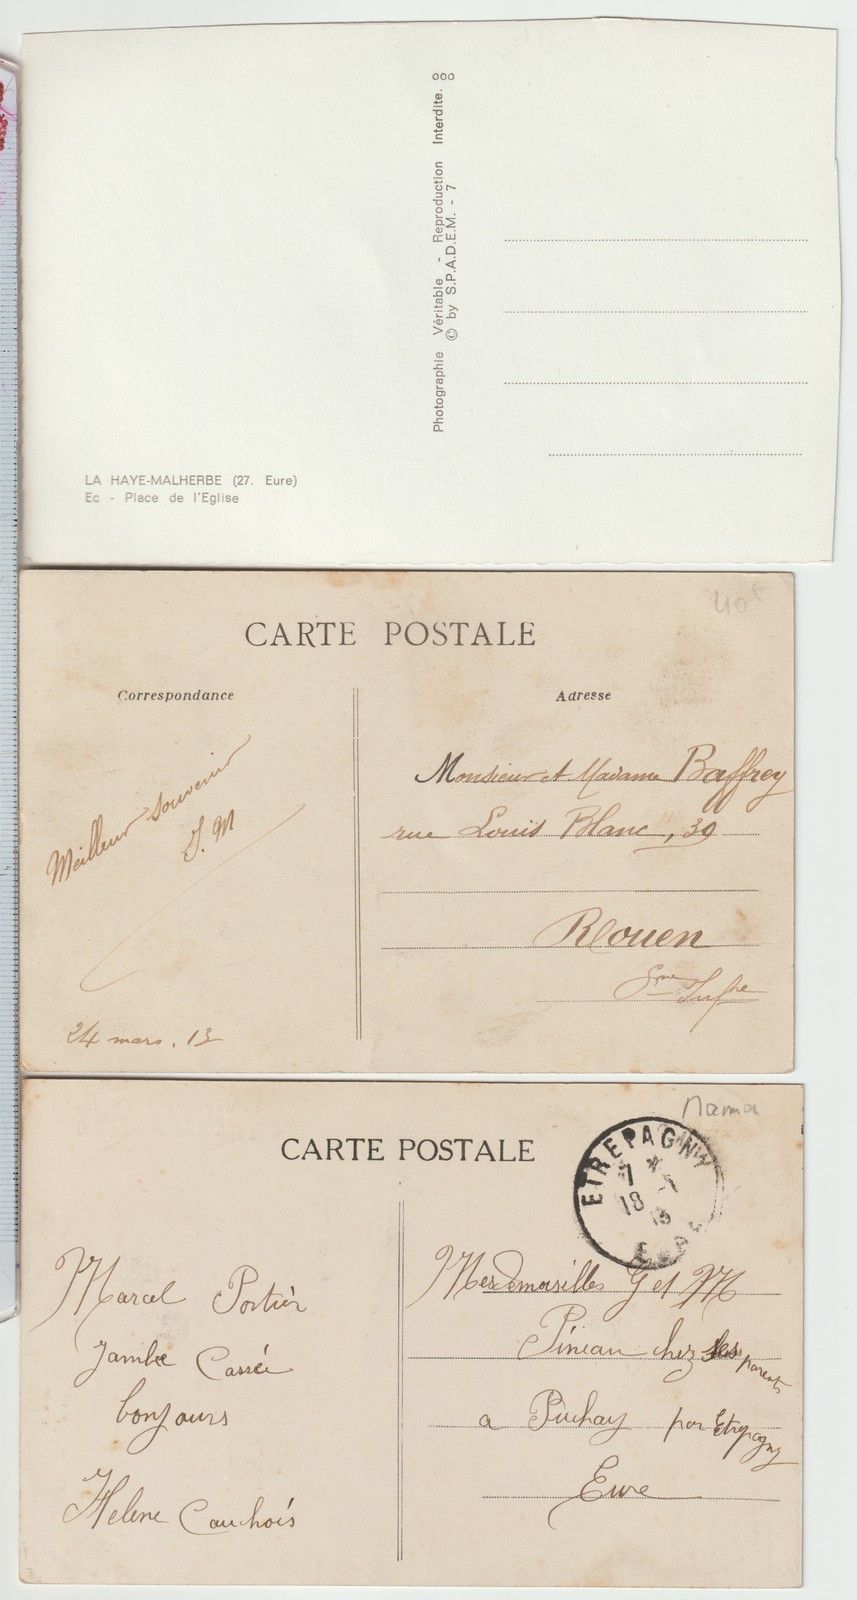 Photographie Véritable - Reproduction Interdite. ooo
© by S.P.A.D.E.M. - 7
LA HAYE-MALHERBE (27. Eure)
Ec - Place de l'Eglise
40F
CARTE POSTALE
Correspondance
Adresse
Meilleur souvenir
J. M
24 mars. 13
Monsieur et Madame Baffrey
rue Louis Blanc, 39
Rouen
Sne Infre
Mama
CARTE POSTALE
ETREPAGNY
7 *
18
EURE
Marcel Portier
Jambe Cassée
bonjours
Helene Cauchois
Mesdemoiselles G et M
Pineau chez ses parents
a Puchay par Etrepagny
Eure